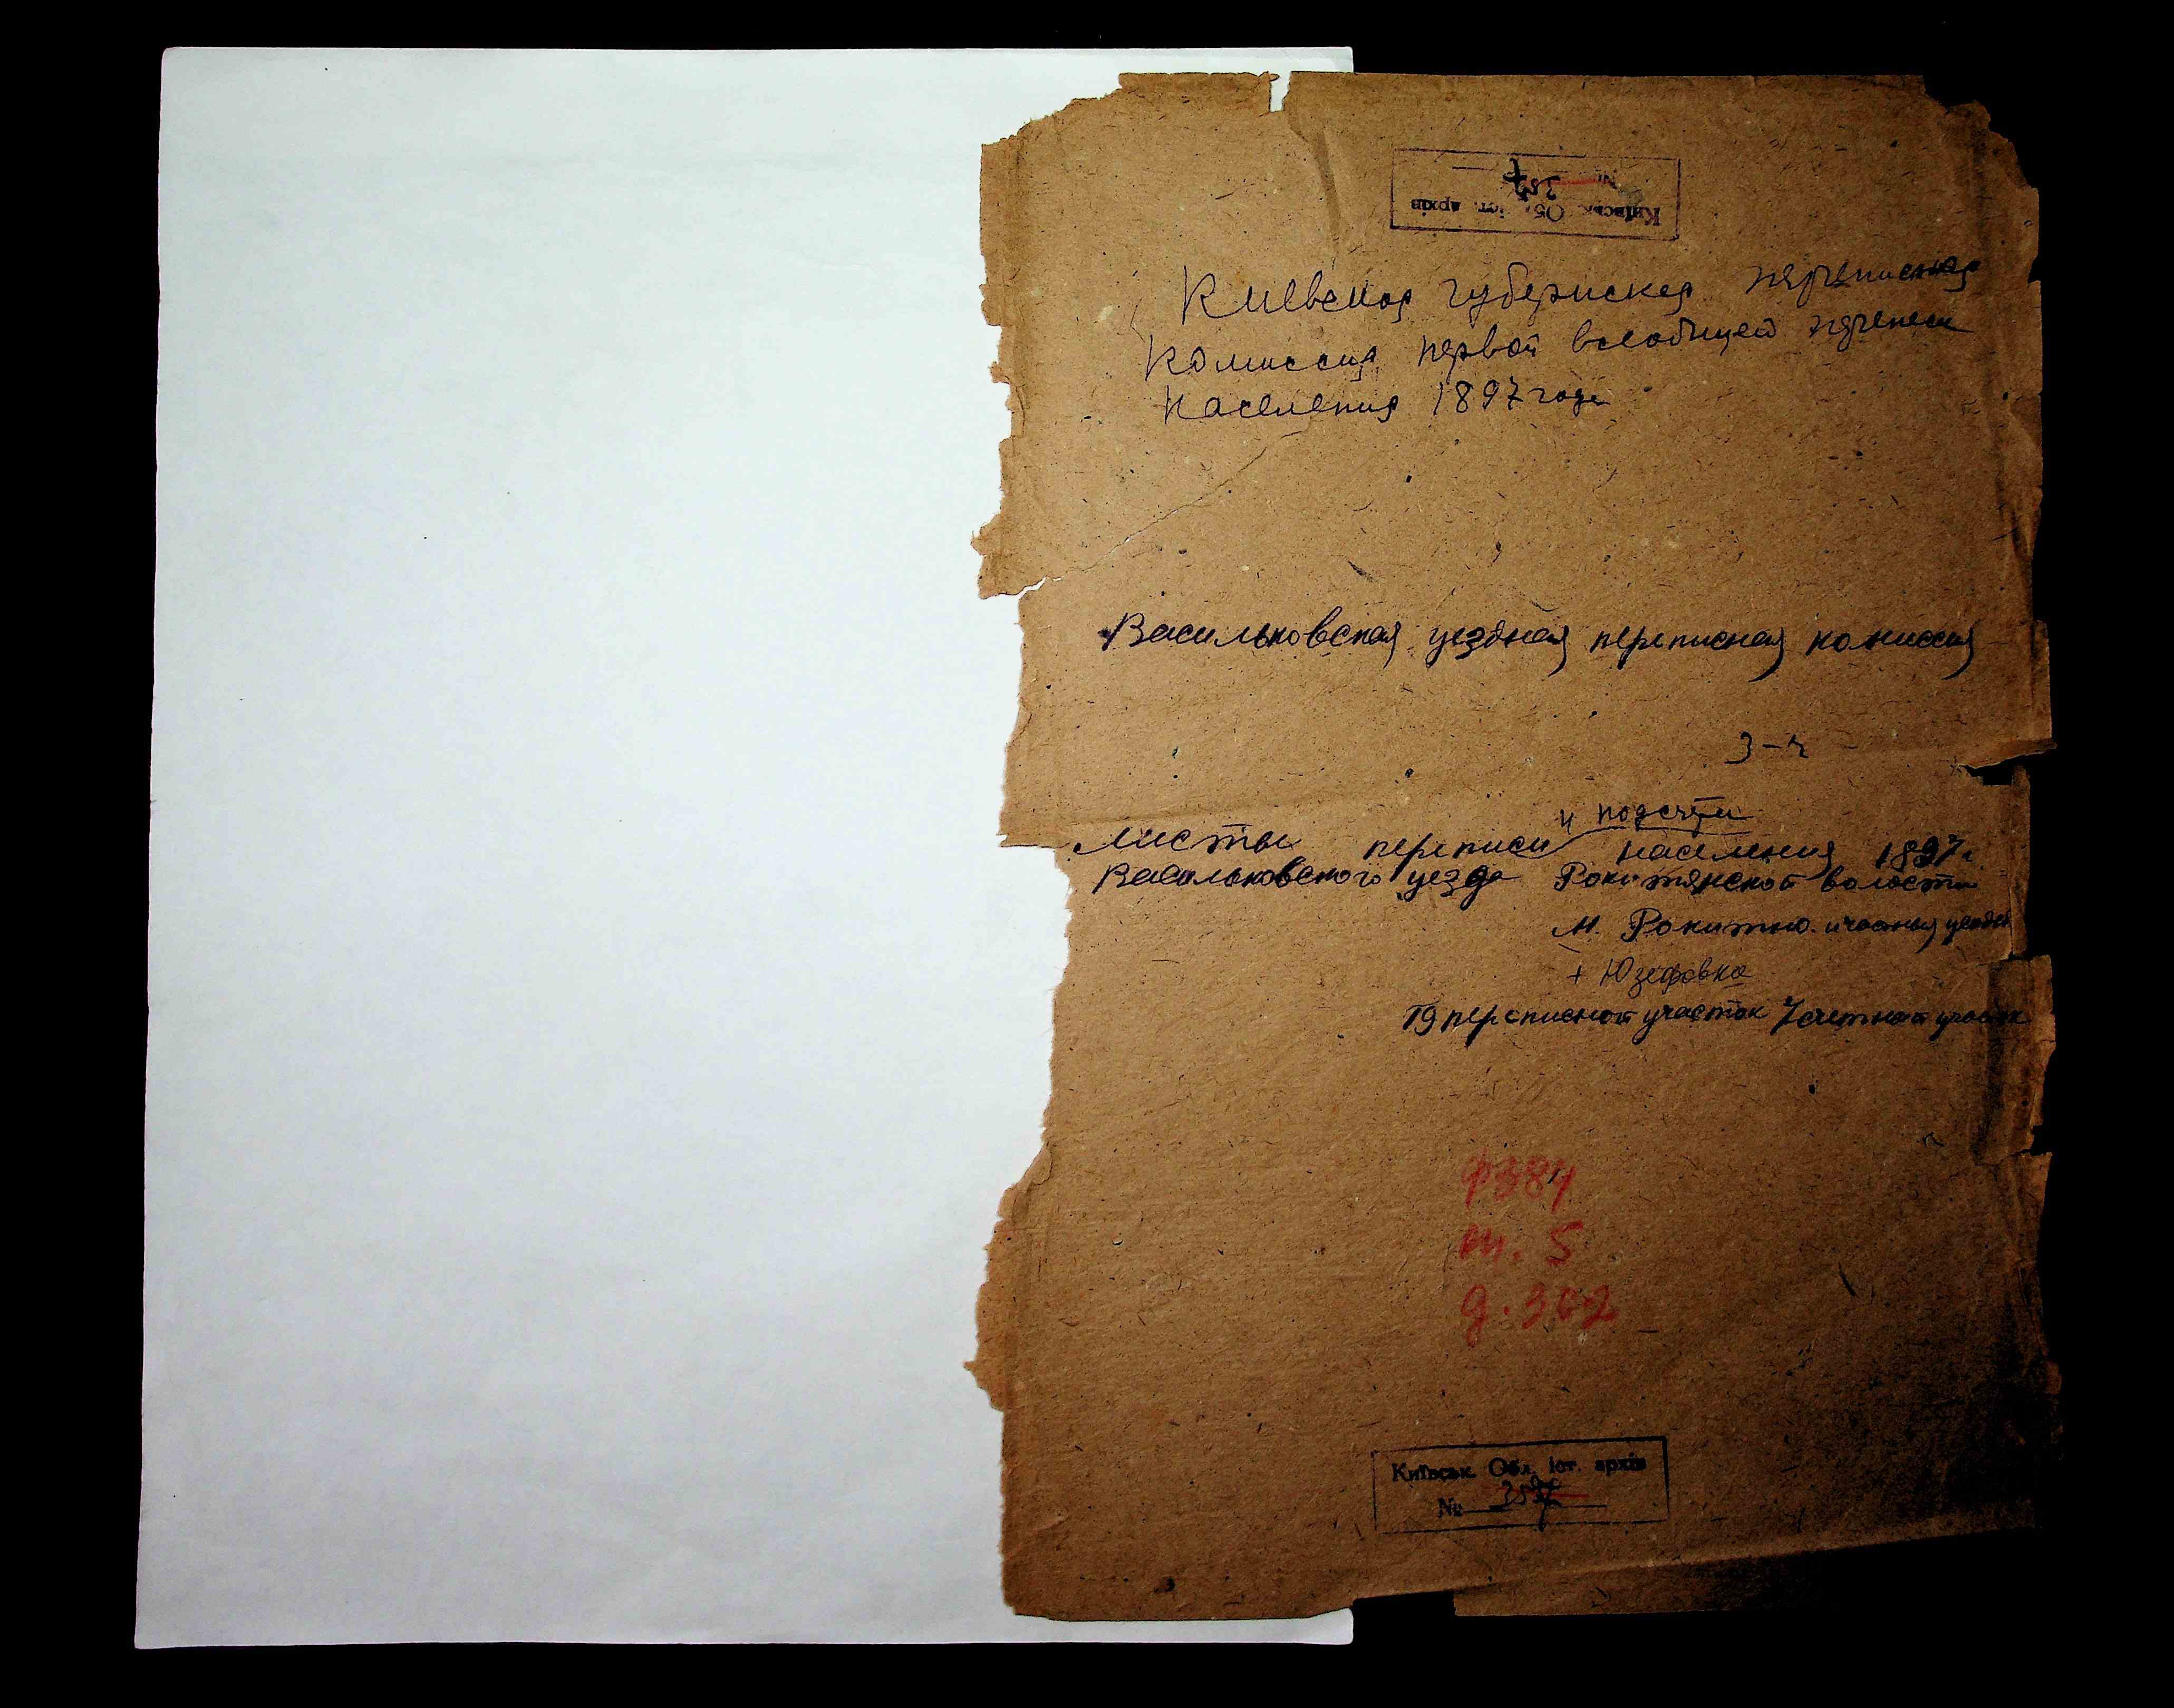 Київськ. Об. іст. архів
№
Киевская губернская переписная
Комиссия первой всеобщей переписи
населения 1897 года
Васильковская уездная переписная комиссия
3-4
и подсчёты
Листы переписи населения 1897 г.
Васильковского уезда Рокитянской волости
м. Рокитно. и частный
+ Юзефовка
19 переписной участок 7 счетный участок
ф 384
т. 5
д. 362
Київськ. Обл. іст. архів
№